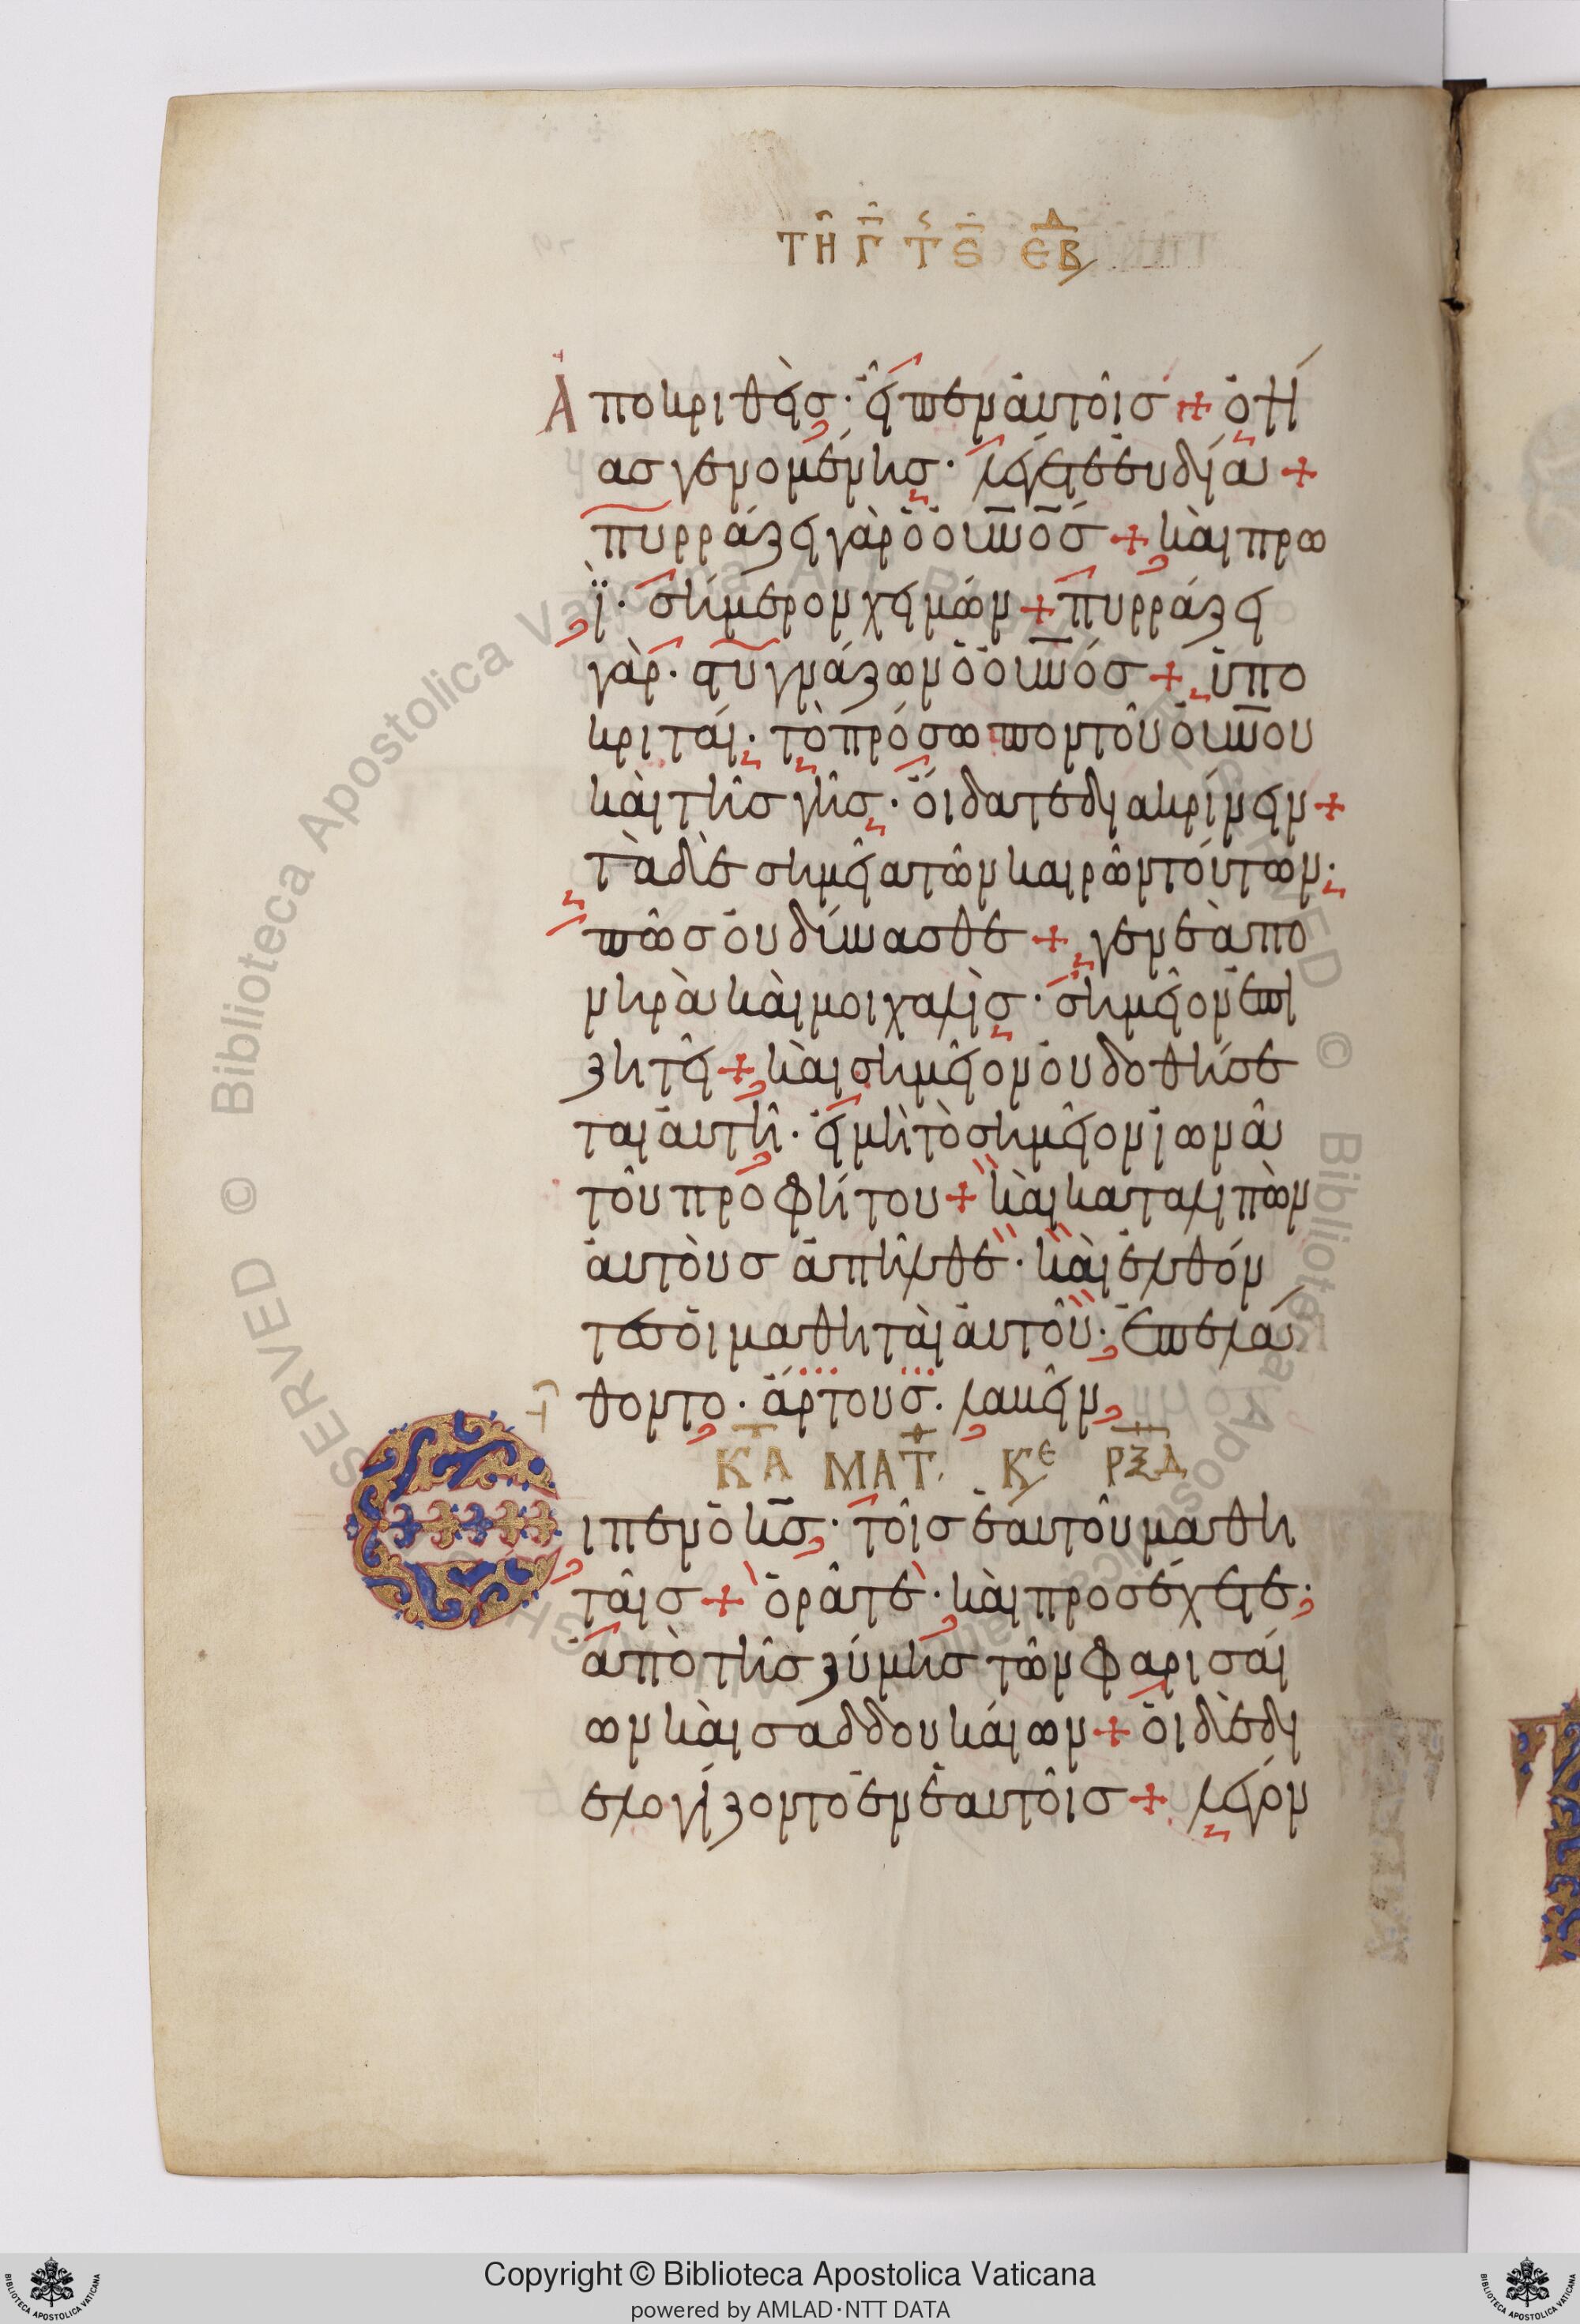 ΤΗ Γ Τ Ϛ ΕΒΔ
Ἀποκριθεὶς· εἶπεν αὐτοῖς + ὀψί
ασ γενομένης· λέγετε εὐδία +
πυρράζει γὰρ ὁ οὐνος + καὶ πρω
ῒ· σήμερον χειμών + πυρράζει
γὰρ· στυγνάζων ὁ οὐνός + ὑπο
κριταί· τὸ πρόσωπον τοῦ οὐνου
καὶ τῆς γῆς· οἴδατε διακρίνειν +
τὰ δὲ σημεῖα τῶν καιρῶν τούτων·
πῶς οὐ δύνασθε + γενεὰ πο
νηρὰ καὶ μοιχαλὶς· σημεῖον ἐπι
ζητεῖ + καὶ σημεῖον οὐ δοθήσε
ται αὐτῇ· εἰ μὴ τὸ σημεῖον ἰωνᾶ
τοῦ προφήτου + καὶ καταλιπὼν
αὐτοὺς ἀπῆλθε· καὶ ἐλθόν
τες οἱ μαθηταὶ αὐτοῦ· ἐπελά
θοντο· ἄρτους· λαβεῖν
Κ,Α ΜΑΤΘ ΚΕ ΡΞΔ
Εἶπεν ὁ κς· τοῖς ἑαυτοῦ μαθη
ταῖς + ὁρᾶτε· καὶ προσέχετε·
ἀπὸ τῆς ζύμης τῶν φαρισαί
ων καὶ σαδδουκαίων + οἱ δὲ δι
ελογίζοντο ἐν ἑαυτοῖς + λέγον
Copyright © Biblioteca Apostolica Vaticana
powered by AMLAD·NTT DATA